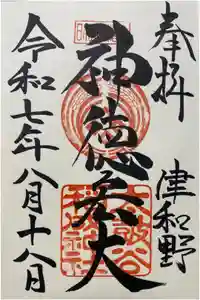 奉拝
津和野
神徳宏大
令和七年八月十八日